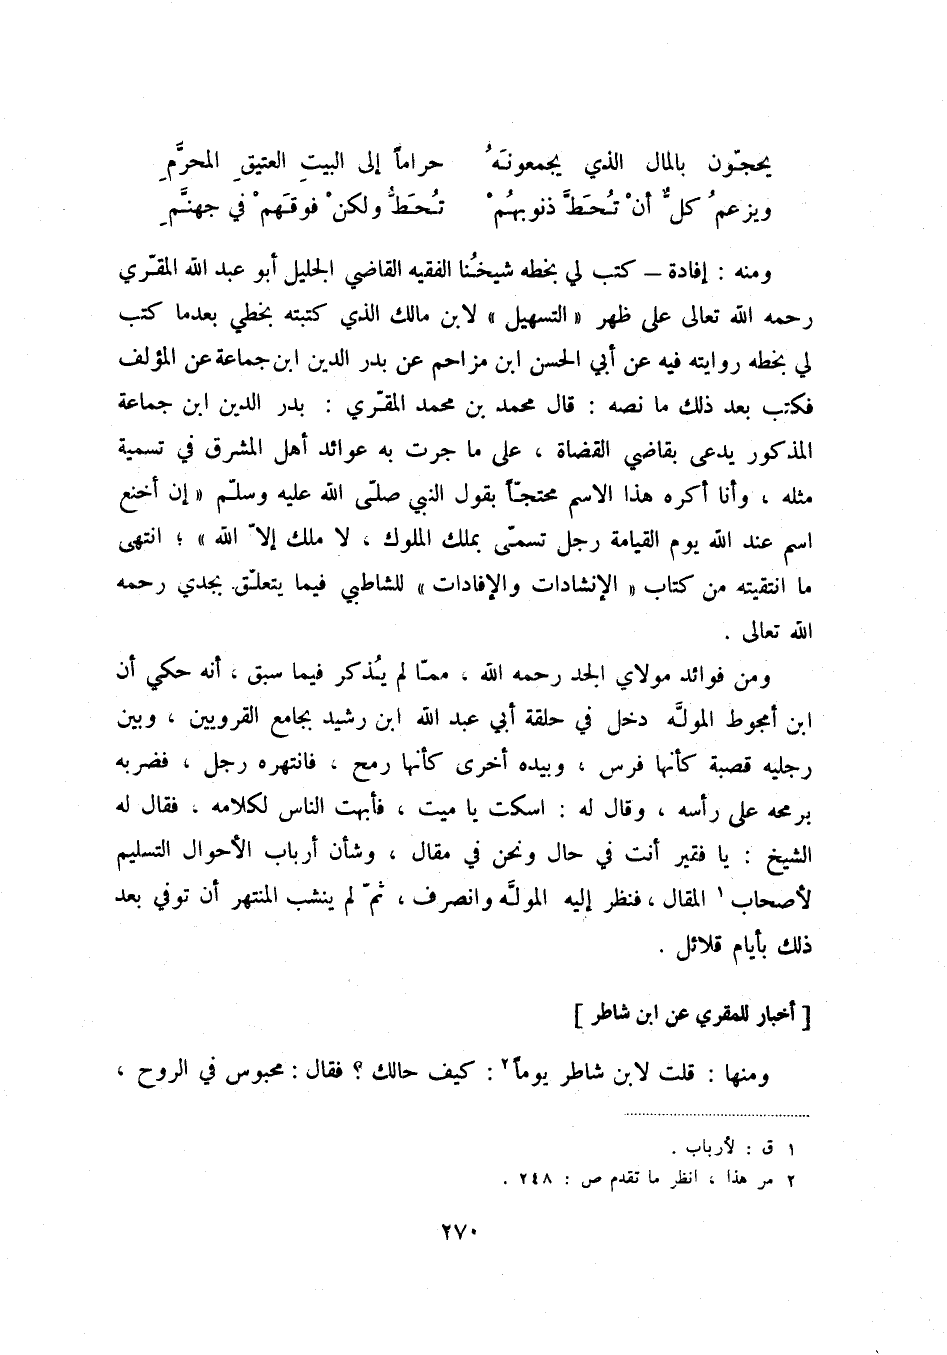 يحجّون بالمال الذي يجمعونَهُ حراماً إلى البيتِ العتيقِ المحرَّمِ
ويزعمُ كلٌّ أنْ تُحَطَّ ذنوبهُمْ تُحَطُّ ولكنْ فوقَهمْ في جهنَّمِ
ومنه : إفادة – كتب لي بخطه شيخُنا الفقيه القاضي الجليل أبو عبد الله المقّري
رحمه الله تعالى على ظهر « التسهيل » لابن مالك الذي كتبته بخطي بعدما كتب
لي بخطه روايته فيه عن أبي الحسن ابن مزاحم عن بدر الدين ابن جماعة عن المؤلف
فكتب بعد ذلك ما نصه : قال محمد بن محمد المقّري : بدر الدين ابن جماعة
المذكور يدعى بقاضي القضاة ، على ما جرت به عوائد أهل المشرق في تسمية
مثله ، وأنا أكره هذا الاسم محتجّاً بقول النبي صلّى الله عليه وسلّم « إن أخنع
اسم عند الله يوم القيامة رجل تسمّى بملك الملوك ، لا ملك إلاّ الله » ؛ انتهى
ما انتقيته من كتاب « الإنشادات والإفادات » للشاطبي فيما يتعلّق بجدي رحمه
الله تعالى .
ومن فوائد مولاي الجد رحمه الله ، ممّا لم يُذكر فيما سبق ، أنه حكي أن
ابن أمجوط المولَّه دخل في حلقة أبي عبد الله ابن رشيد بجامع القرويين ، وبين
رجليه قصبة كأنها فرس ، وبيده أخرى كأنها رمح ، فانتهره رجل ، فضربه
برمحه على رأسه ، وقال له : اسكت يا ميت ، فأبهت الناس لكلامه ، فقال له
الشيخ : يا فقير أنت في حال ونحن في مقال ، وشأن أرباب الأحوال التسليم
لأصحاب ١ المقال ، فنظر إليه المولَّه وانصرف ، ثمّ لم ينشب المنتهر أن توفي بعد
ذلك بأيام قلائل .
[ أخبار للمقري عن ابن شاطر ]
ومنها : قلت لابن شاطر يوماً ٢ : كيف حالك ؟ فقال : محبوس في الروح ،
١ ق : لأرباب .
٢ مر هذا ، انظر ما تقدم ص : ٢٤٨ .
٢٧٠